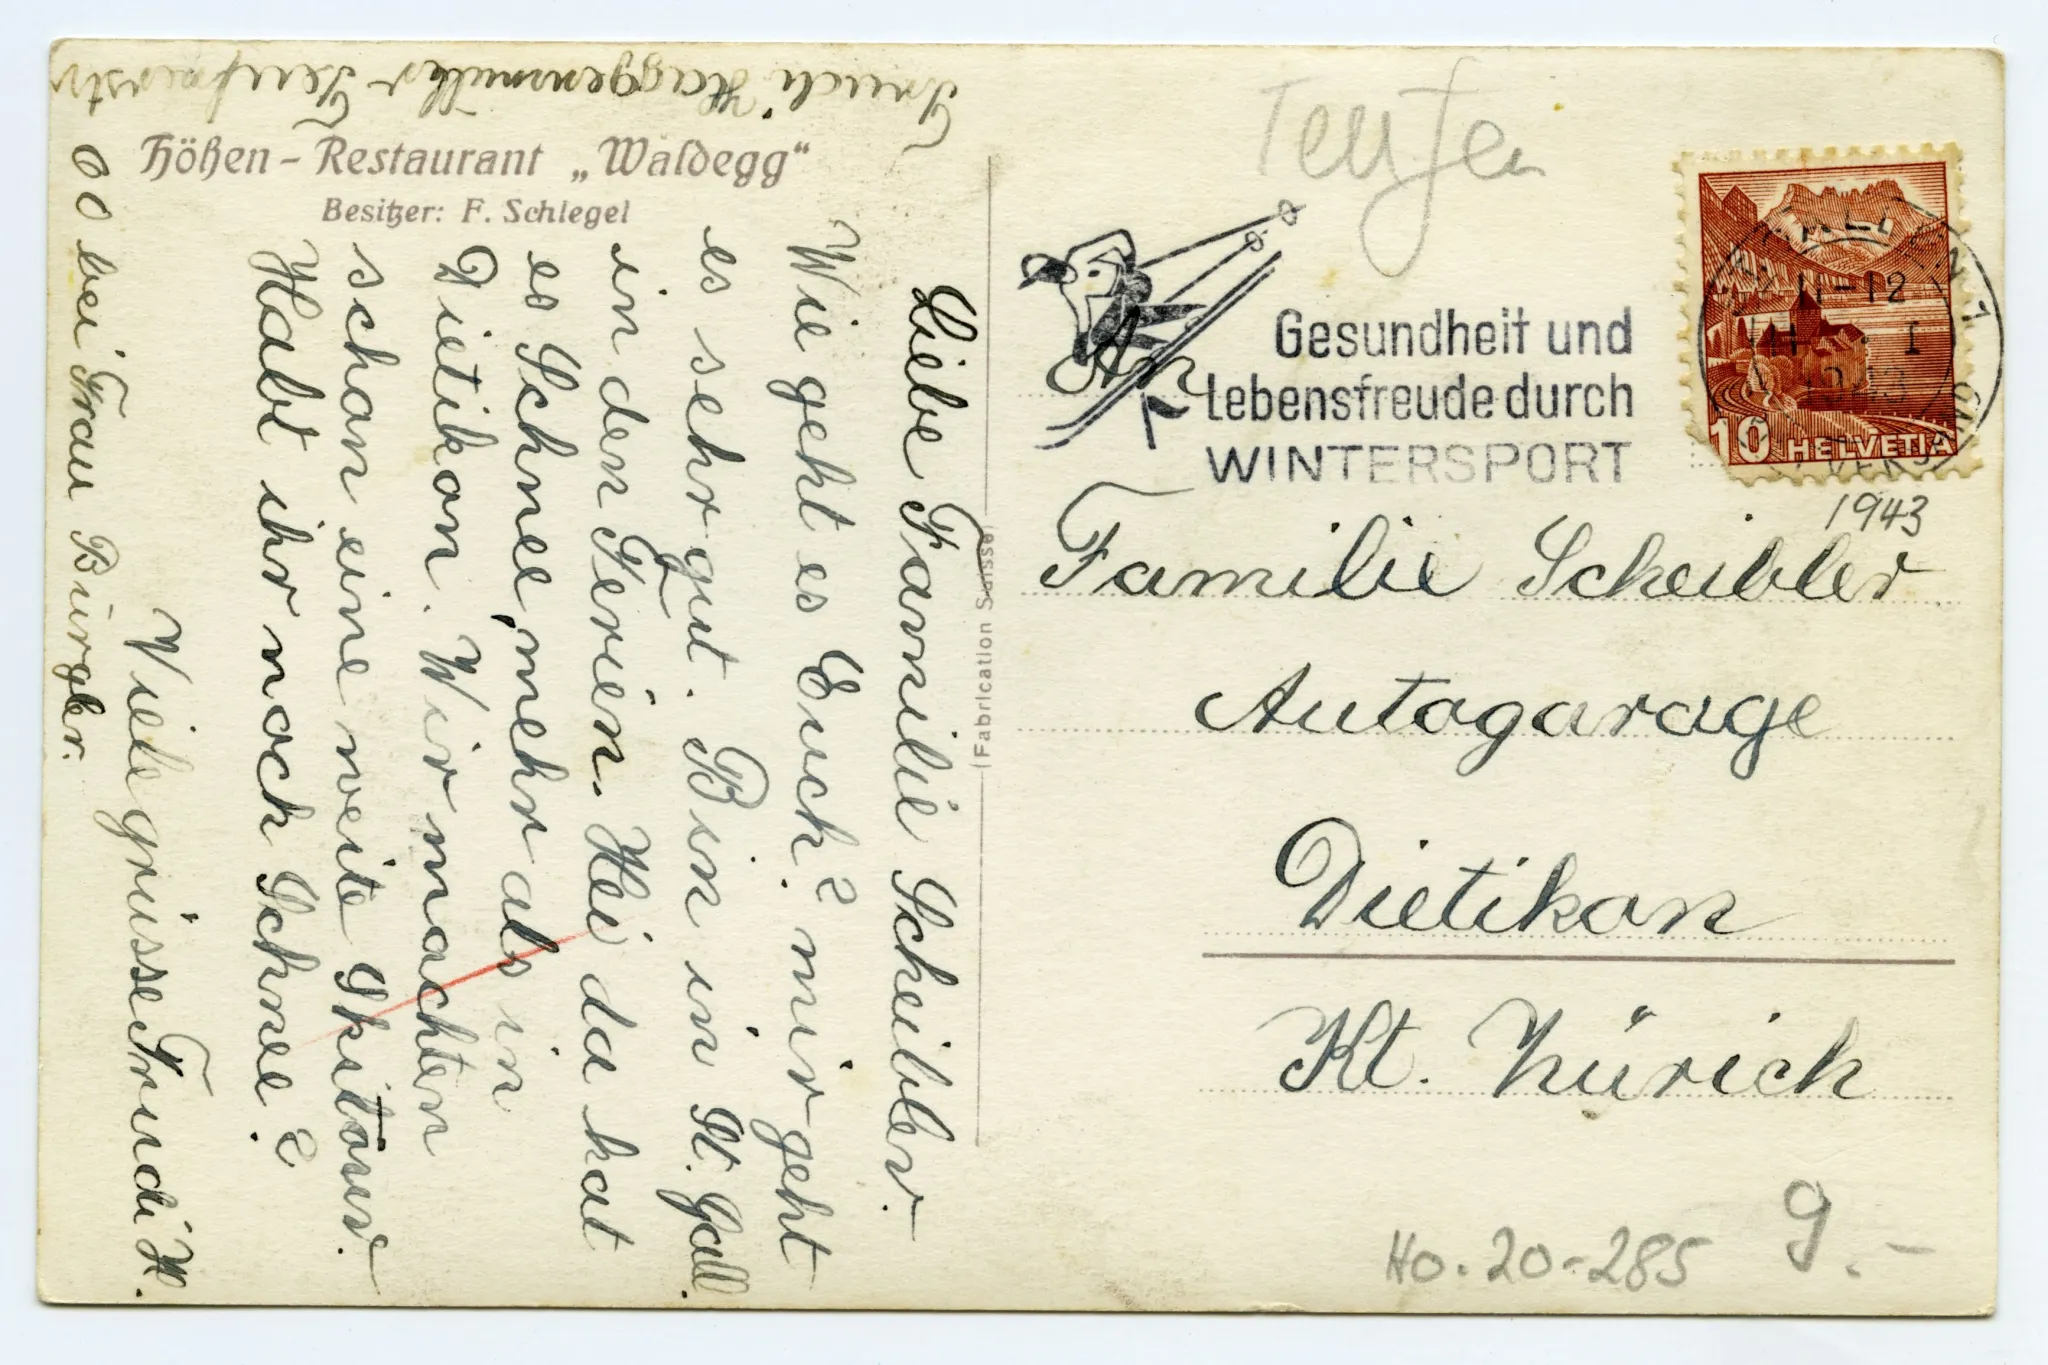 Trudi Haggenmüller Teufenerstr
00 bei Frau Bürgler.
Höhen-Restaurant „Waldegg“
Besitzer: F. Schlegel
Liebe Familie Scheibler.
Wie geht es Euch? mir geht
es sehr gut. Bin in St. Gall.
in den Ferien. Hei da hat
es Schnee, mehr als in
Dietikon. Wir machten
schon eine weite Skitour.
Habt ihr noch Schnee?
Viele grüsse Trudi H.
(Fabrication Suisse)
Teufen
Gesundheit und
Lebensfreude durch
WINTERSPORT
11-12
VIII · I
1943
10 HELVETIA
1943
An
Familie Scheibler
Autogarage
Dietikon
Kt. Zürich
Ho. 20-285
9.-